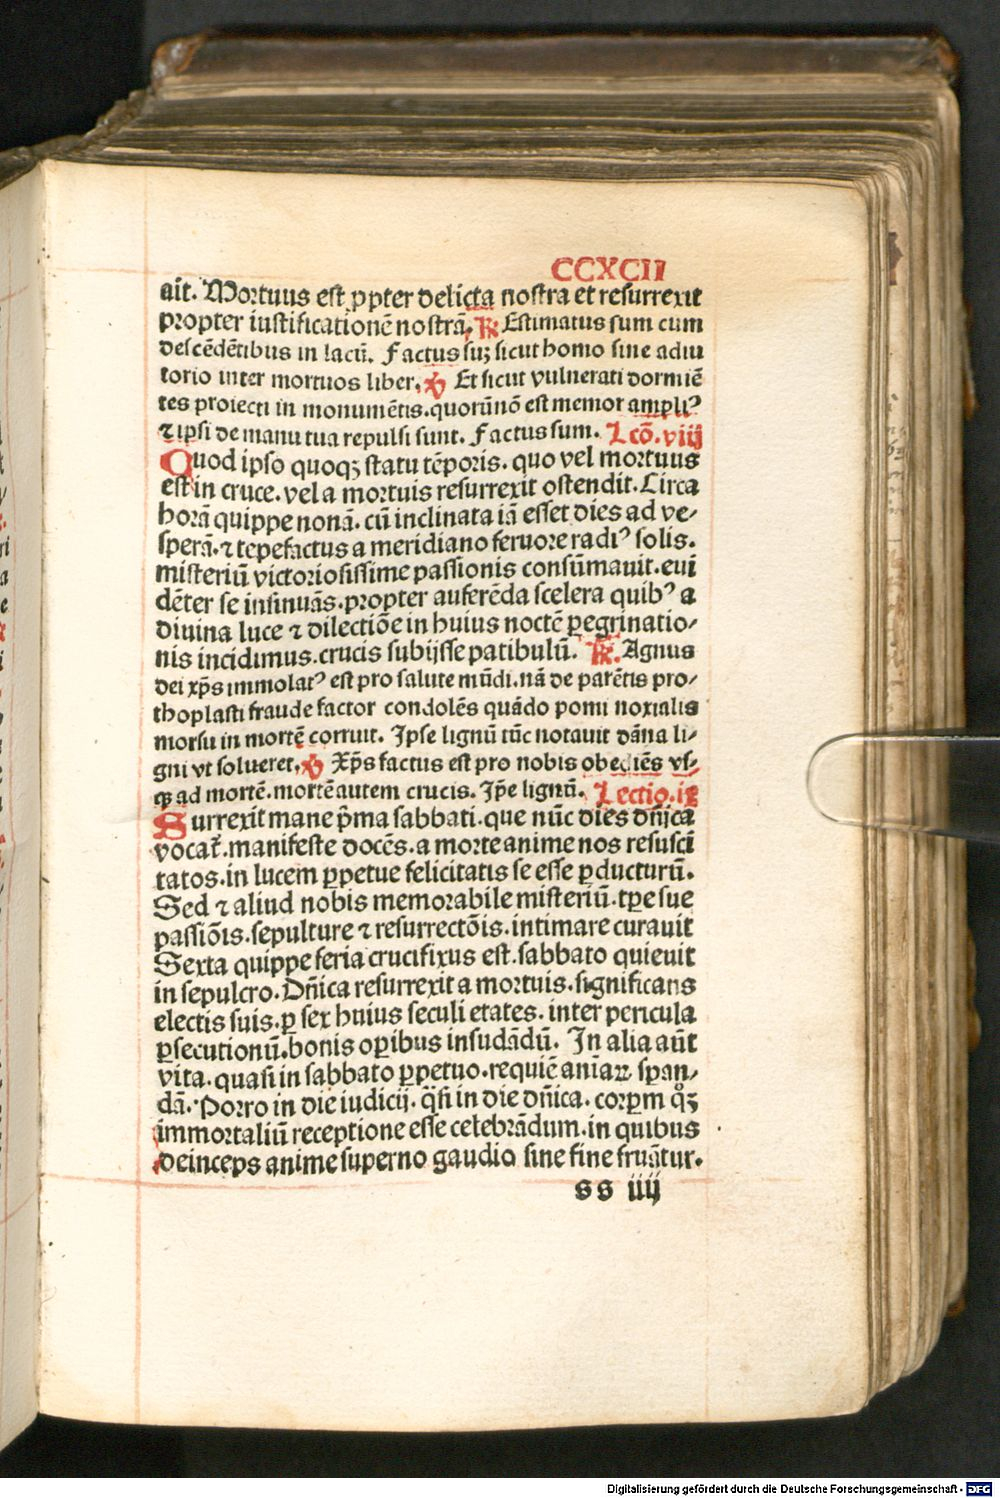 CCXCII
ait. Mortuus est ꝓpter delicta nostra et resurrexit
propter iustificationē nostrā. ℟ Estimatus sum cum
descēdētibus in lacū. Factus suꝫ sicut homo sine adiu
torio inter mortuos liber. ℣ Et sicut vulnerati dormiē
tes proiecti in monumētis. quorū nō est memor ampliꝰ
⁊ ipsi de manu tua repulsi sunt. Factus sum. Lcō. viij
Quod ipso quoqꝫ statu tēporis. quo vel mortuus
est in cruce. vel a mortuis resurrexit ostendit. Circa
horā quippe nonā. cū inclinata iā esset dies ad ve⸗
sperā. ⁊ tepefactus a meridiano feruore radiꝰ solis.
misteriū victoriosissime passionis consūmauit. eui
dēter se insinuās. propter auferēda scelera quibꝰ a
diuina luce ⁊ dilectiōe in huius noctē ꝑegrinatio⸗
nis incidimus. crucis subijsse patibulū. ℟. Agnus
dei xp̄s immolatꝰ est pro salute mūdi. nā de parētis pro⸗
thoplasti fraude factor condolēs quādo pomi noxialis
morsu in mortē corruit. Ipse lignū tūc notauit dāna li⸗
gni vt solueret. ℣ Xp̄s factus est pro nobis obediēs vs⸗
qꝫ ad mortē. mortē autem crucis. Ip̄e lignū. Lectio. ix
Surrexit mane p̄ma sabbati. que nūc dies dn̄ica
vocat᷑. manifeste docēs. a morte anime nos resusci
tatos. in lucem ꝑpetue felicitatis se esse ꝑducturū.
Sed ⁊ aliud nobis memorabile misteriū. tp̄e sue
passiōis. sepulture ⁊ resurrectōis. intimare curauit
Sexta quippe feria crucifixus est. sabbato quieuit
in sepulcro. Dn̄ica resurrexit a mortuis. significans
electis suis. ꝑ sex huius seculi etates. inter pericula
ꝑsecutionū. bonis oꝑibus insudādū. In alia aūt
vita. quasi in sabbato ꝑpetuo. requiē aniaꝝ sꝑan⸗
dā. Porro in die iudicij. q̄si in die dn̄ica. corꝑm qͦꝫ
immortaliū receptione esse celebrādum. in quibus
deinceps anime superno gaudio sine fine fruātur.
ss iiij
Digitalisierung gefördert durch die Deutsche Forschungsgemeinschaft - DFG